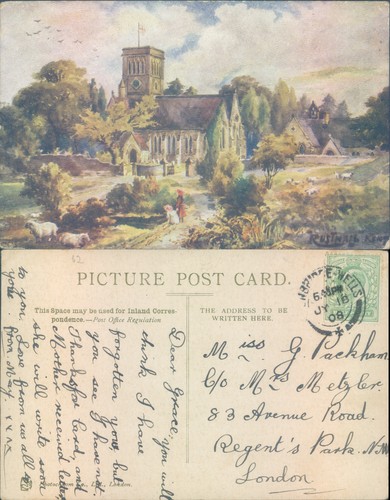 RUSTHALL
62
PICTURE POST CARD.
This Space may be used for Inland Corres-
pondence.—Post Office Regulation
THE ADDRESS TO BE
WRITTEN HERE.
WELLS
08
Dear Grace, you will
think I have
forgotten you, but
you see I havent.
Thanks for Card, and
Mother received letter
she will write soon
to you Love from us all
yours from May. xxxx
Miss G. Packham
C/o Mrs Metzler
83 Avenue Road.
Regent's Park. N.W
London
London.